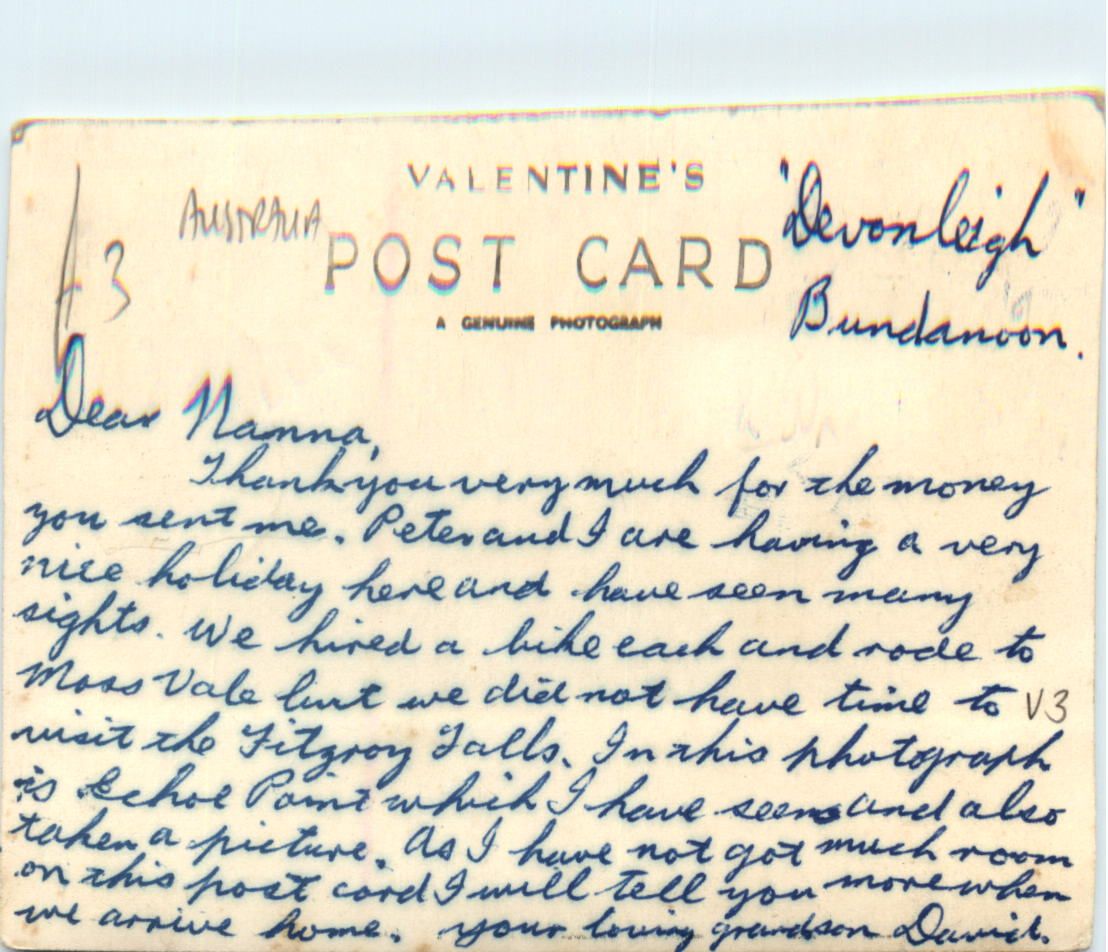 VALENTINE'S
AUSTRALIA
POST CARD
A GENUINE PHOTOGRAPH
"Devonleigh"
Bundanoon.
£3
Dear Nanna,
Thank you very much for the money
you sent me. Peter and I are having a very
nice holiday here and have seen many
sights. We hired a bike each and rode to
Moss Vale but we did not have time to
V3
visit the Fitzroy Falls. In this photograph
is Echoe Point which I have seen and also
taken a picture. As I have not got much room
on this post card I will tell you more when
we arrive home. your loving grandson David.